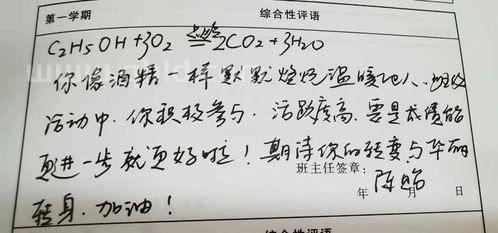 第一学期 综合性评语
C2H5OH+3O2 点燃 2CO2+3H2O
你像酒精一样默默燃烧温暖他人、班级
活动中,你积极参与,活跃度高,要是成绩能
更进一步就更好啦!期待你的转变与华丽
班主任签章:陈
转身,加油! 年 月 日
综合性评语